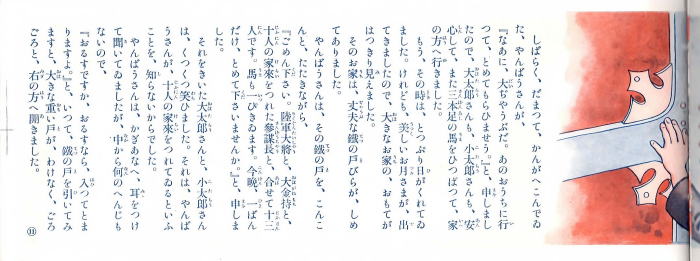 しばらく、だまつて、かんがへこんでゐ
た、やんばうさんが、
『なあに、大ぢやうぶだ。あのおうちに行
つて、とめてもらひませう。』と、申しまし
たので、大太郎さんも、小太郎さんも、安
心して、また三疋の馬をひつぱつて、家
の方へ行きました。
もう、その時は、とつぷり日がくれてゐ
ました。けれども、美しいお月さまが、出
てきましたので、大きなお家の、おもてが
はつきり見えました。
そのお家は、丈夫な鐵の戸びらが、しめ
てありました。
やんばうさんは、その鐵の戸を、こんこ
んと、たたきながら、
『ごめん下さい。陸軍大將と、大金持と、
十人の家來をつれた參謀長と、合せて十三
人です。馬も三びきゐます。今晩、一ばん
だけ、とめて下さいませんか。』と、申しま
した。
それをきいた大太郎さんと、小太郎さん
は、くつくつ笑ひました。それは、やんば
うさんが、十人の家來をつれてゐるといふ
ことを、知らないからでした。
やんばうさんは、かぎあなへ、耳をつけ
て聞いてゐましたが、中から何のへんじも
ないので、
『おるすですか、おるすなら、入つてとま
りますよ。』と、いつて、鐵の戸を引いてみ
ますと、大きな重い戸が、わけなく、ごろ
ごろと、右の方へ開きました。
⑬